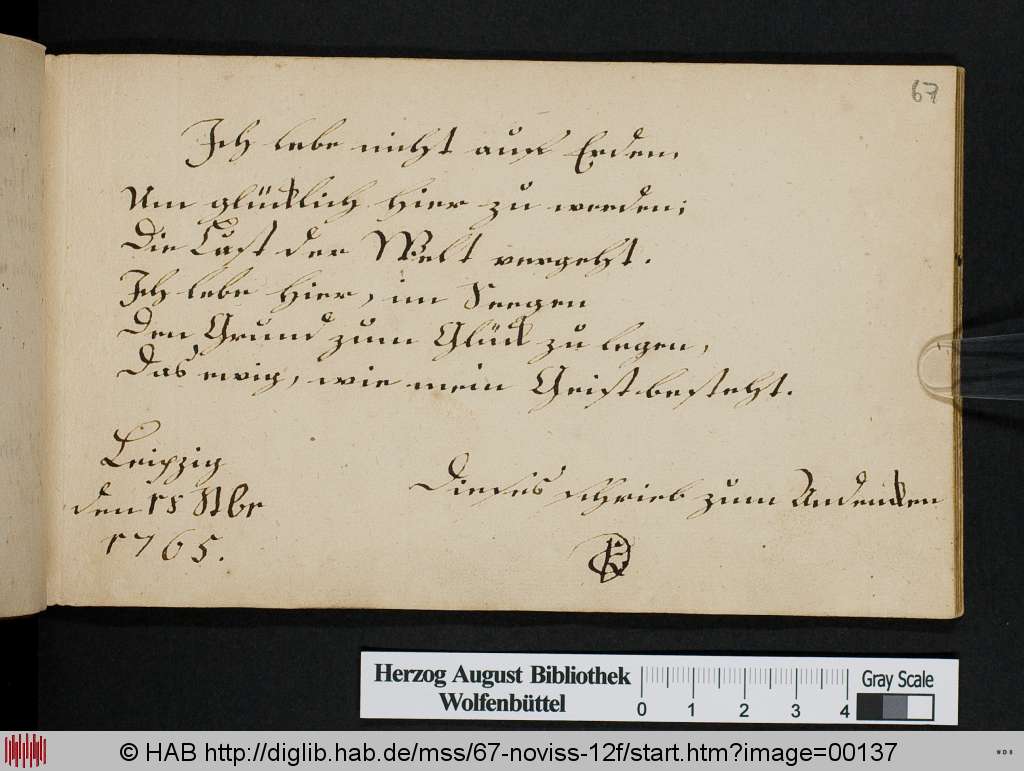 67
Ich lebe nicht auf Erden,
Um glücklich hier zu werden;
Die Lust der Welt vergeht.
Ich lebe hier, im Seegen
Den Grund zum Glück zu legen,
Das ewig, wie mein Geist besteht.
Leipzig
den 15
1765.
Dieses schrieb zum Andencken
Herzog August Bibliothek
Wolfenbüttel
0 1 2 3 4
Gray Scale
© HAB http://diglib.hab.de/mss/67-noviss-12f/start.htm?image=00137
WDB